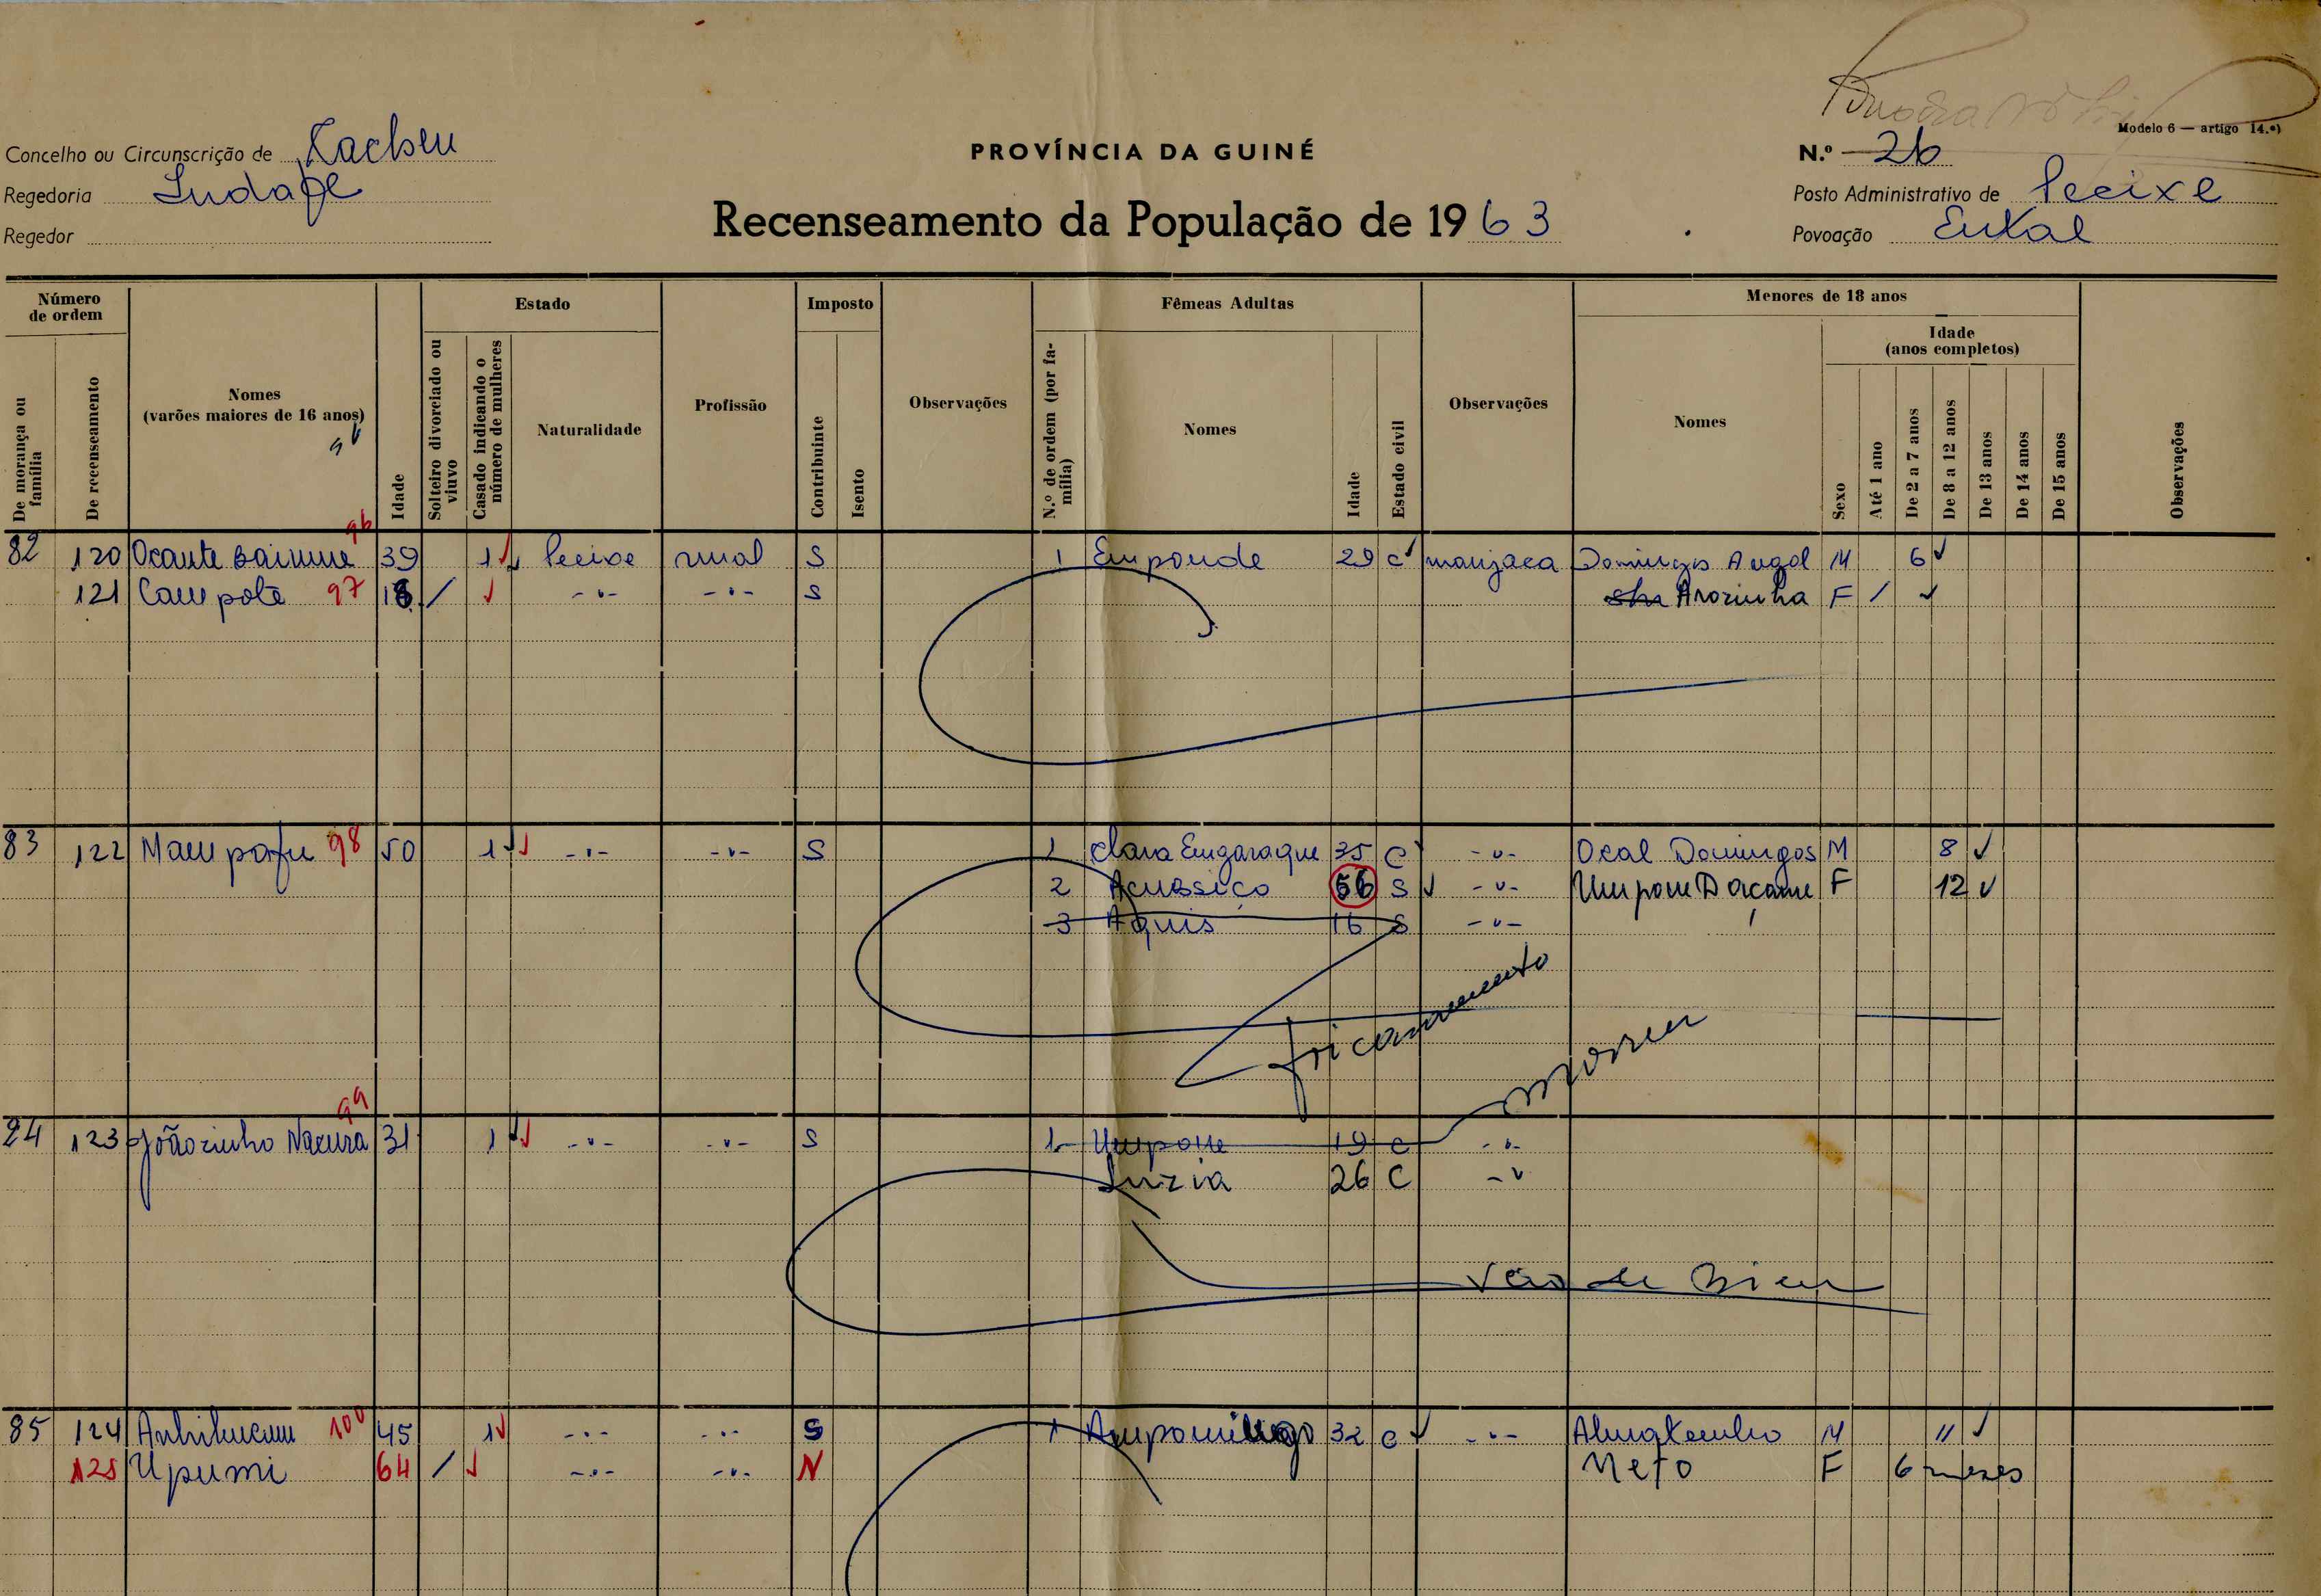 Modelo 6 — artigo 14.º)
Concelho ou Circunscrição de Kacheu
PROVÍNCIA DA GUINÉ
N.º 26
Regedoria
Recenseamento da População de 1963
Posto Administrativo de Pecixe
Regedor
Povoação
Número de ordem
Estado
Imposto
Fêmeas Adultas
Menores de 18 anos
De morança ou família
De recenseamento
Nomes
(varões maiores de 16 anos)
Idade
Solteiro divorciado ou viuvo
Casado indicando o número de mulheres
Naturalidade
Profissão
Contribuinte
Isento
Observações
N.º de ordem (por família)
Nomes
Idade
Estado civil
Observações
Nomes
Sexo
Idade
(anos completos)
Até 1 ano
De 2 a 7 anos
De 8 a 12 anos
De 13 anos
De 14 anos
De 15 anos
Observações
96
82 120 Ocante 39 1 Pecixe rural S 1 Emponde 29 C manjaca Domingos M 6
121 Campote 97 18 / -"- -"- S Arozinha F /
83 122 98 50 1 -"- -"- S 1 Clara Emgaraque 35 C -"- Ocal Domingos M 8
2 Acussiço 56 S -"- F 12
3 Aquis 16 S -"-
casamento
morreu
99
84 123 Joãozinho Nacura 31 1 -"- -"- S 1 19 C -"-
Luzia 26 C -"
85 124 100 45 1 -"- -"- S 1 32 C -"- M 11
125 Upumi 64 / -"- -"- N Neto F 6 meses